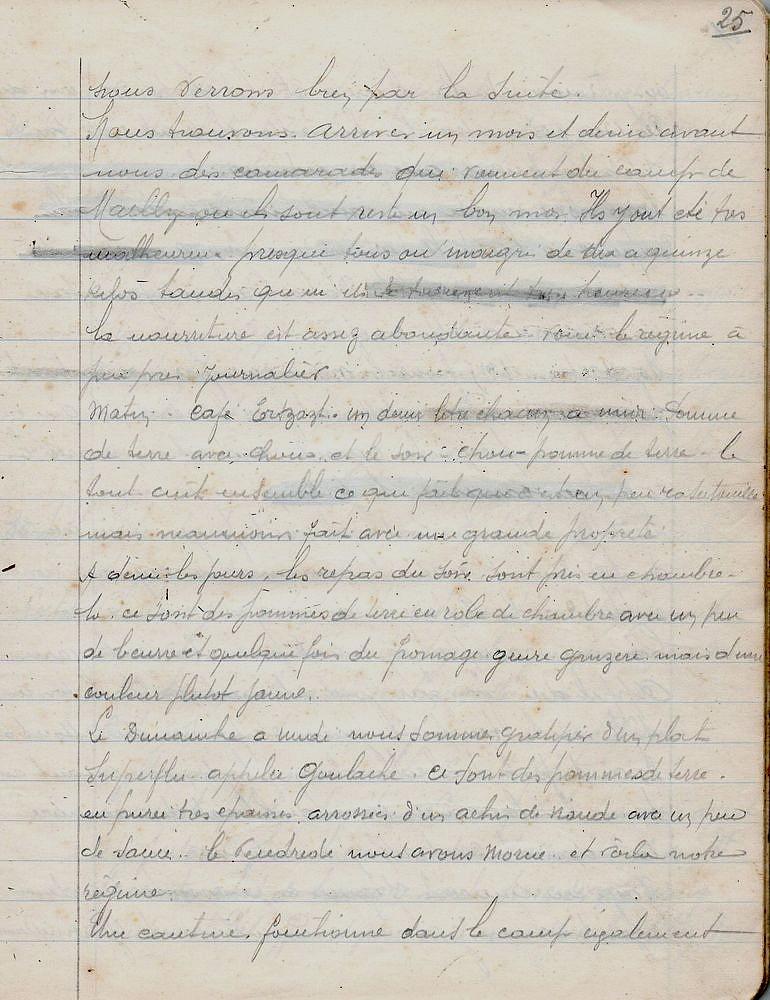 25
nous verrons bien par la suite.
Nous trouvons. arriver un mois et demi avant
nous des camarades qui viennent du camp de
Mailly ou ils sont reste un bon mois. Ils y ont été tres
malheureux presque tous on maigri de dix a quinze
kilos tandis que ici ils se trouvent tres heureux.
la nourriture est assez abondante. voici le régime à
peu pres Journalier
Matin. Café Erzazt. un demi litre chacun a midi. Pomme
de terre avec choux. et le soir. chou-pomme de terre. le
tout cuit ensemble ce qui fait que c'est un peu ratatouille
mais neanmoins fait avec une grande propreté
les jours, les repas du Soir sont pris en chambre.
la, ce sont des pommes de terre en robe de chambre avec un peu
de beurre et quelque fois du fromage genre gruzere, mais d'une
couleur plutot jaune.
Le Dimanche a midi nous sommes gratifier d'un plat
superflu appeler Goulache. ce sont des pommes de terre.
en purée tres epaisses arrosées d'un achis de viande avec un peu
de sauce. le Vendredi nous avons Morue et voila notre
régime.
Une cantine. fonctionne dans le camp également